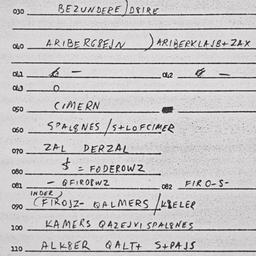 030 BEZUNDERE/DRIRE
040 ARIBERGBEJN )ARIBERKLAJB+ZAX
041 6 — 042 —
043 0
050 CIMERN
060 SPALGNES/S+LOFCIMER
070 ZAL DERZAL
080 $ = FODEROWZ
081 - QFIROBWZ 082 FIRO-S-
INDER
090 (FIROJZ- QALMERS/KBELER
100 KAMERS QAZEJVISPALGNES
110 ALKBER QALT+ S+PAJS